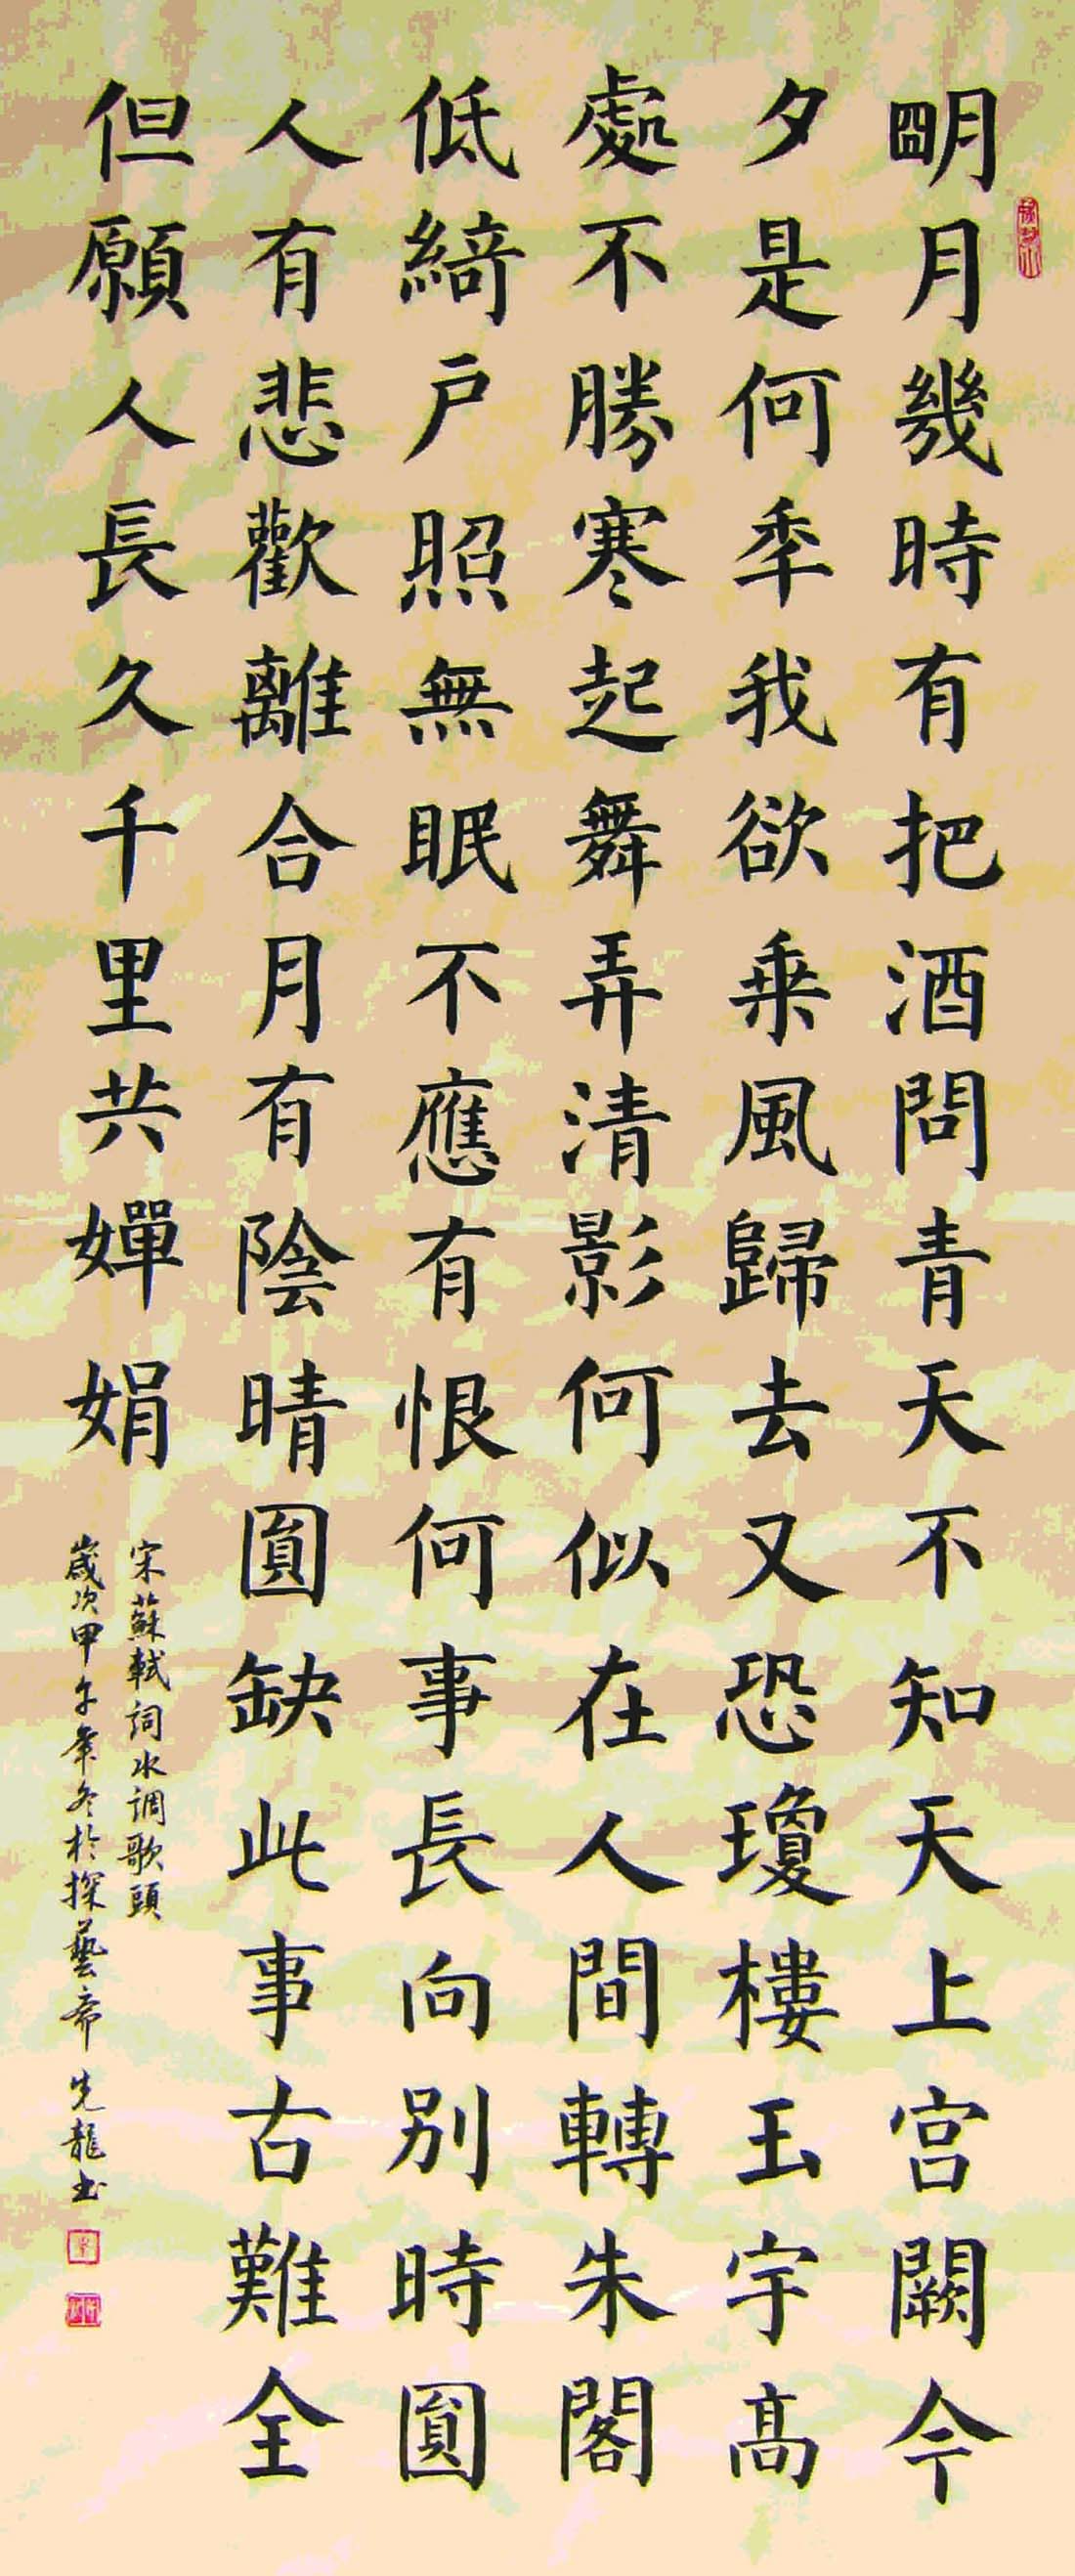 朙月幾時有把酒問青天不知天上宮闕今
夕是何秊我欲乗風歸去又恐瓊樓玉宇高
處不勝寒起舞弄清影何似在人間轉朱閣
低綺户照無眠不應有恨何事長向别時圓
人有悲歡離合月有陰晴圓缺此事古難全
但願人長久千里共嬋娟
宋蘇軾詞水调歌頭
歲次甲午年冬於探藝齋先龍书